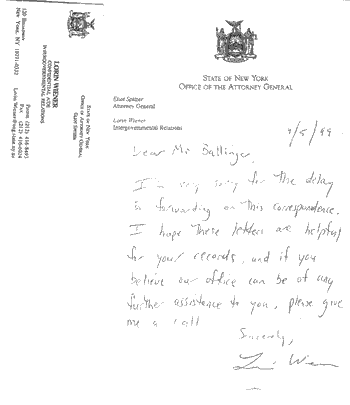 STATE OF NEW YORK
OFFICE OF THE ATTORNEY GENERAL
Eliot Spitzer
Attorney General
Loren Wiener
Intergovernmental Relations
Dear Mr. Ballinger,
I'm very sorry for the delay
in forwarding on this correspondence.
I hope these letters are helpful
for your records, and if you
believe our office can be of any
further assistance to you, please give
me a call
Sincerely,
STATE OF NEW YORK
OFFICE OF THE ATTORNEY GENERAL
ELIOT SPITZER
LOREN WIENER
CONFIDENTIAL AIDE
INTERGOVERNMENTAL RELATIONS
120 BROADWAY
NEW YORK, NY 10271-0332